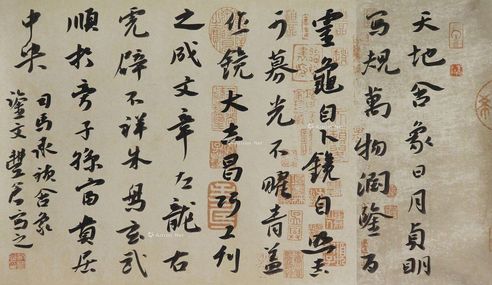 天地含象日月貞明
寫規萬物洞鑒百
靈龜自卜鏡自
可募光不曜青蓋
作鏡大吉昌巧工刊
之成文章左龍右
虎辟不祥朱鳥玄武
順於旁子孫富貴居
中央
司馬承禎含象
鑒文豐寫之